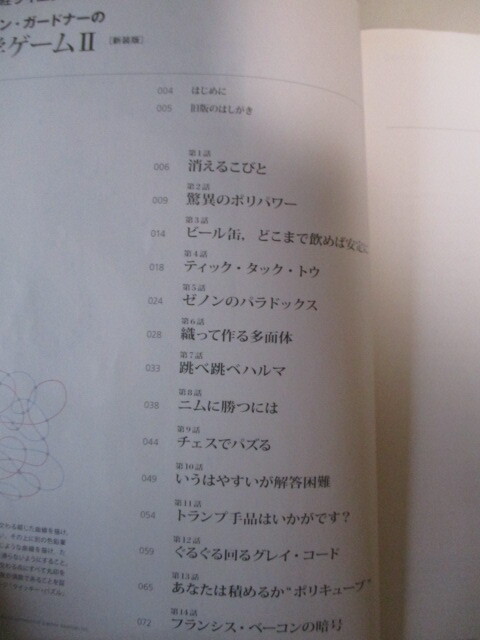 ン・ガードナーの
ゲームⅡ [新装版]
004 はじめに
005 旧版のはしがき
第1話
006 消えるこびと
第2話
009 驚異のポリパワー
第3話
014 ビール缶，どこまで飲めば安定に
第4話
018 ティック・タック・トウ
第5話
024 ゼノンのパラドックス
第6話
028 織って作る多面体
第7話
033 跳べ跳べハルマ
第8話
038 ニムに勝つには
第9話
044 チェスでパズる
第10話
049 いうはやすいが解答困難
第11話
054 トランプ手品はいかがです？
第12話
059 ぐるぐる回るグレイ・コード
第13話
065 あなたは積めるか“ポリキューブ”
第14話
072 フランシス・ベーコンの暗号